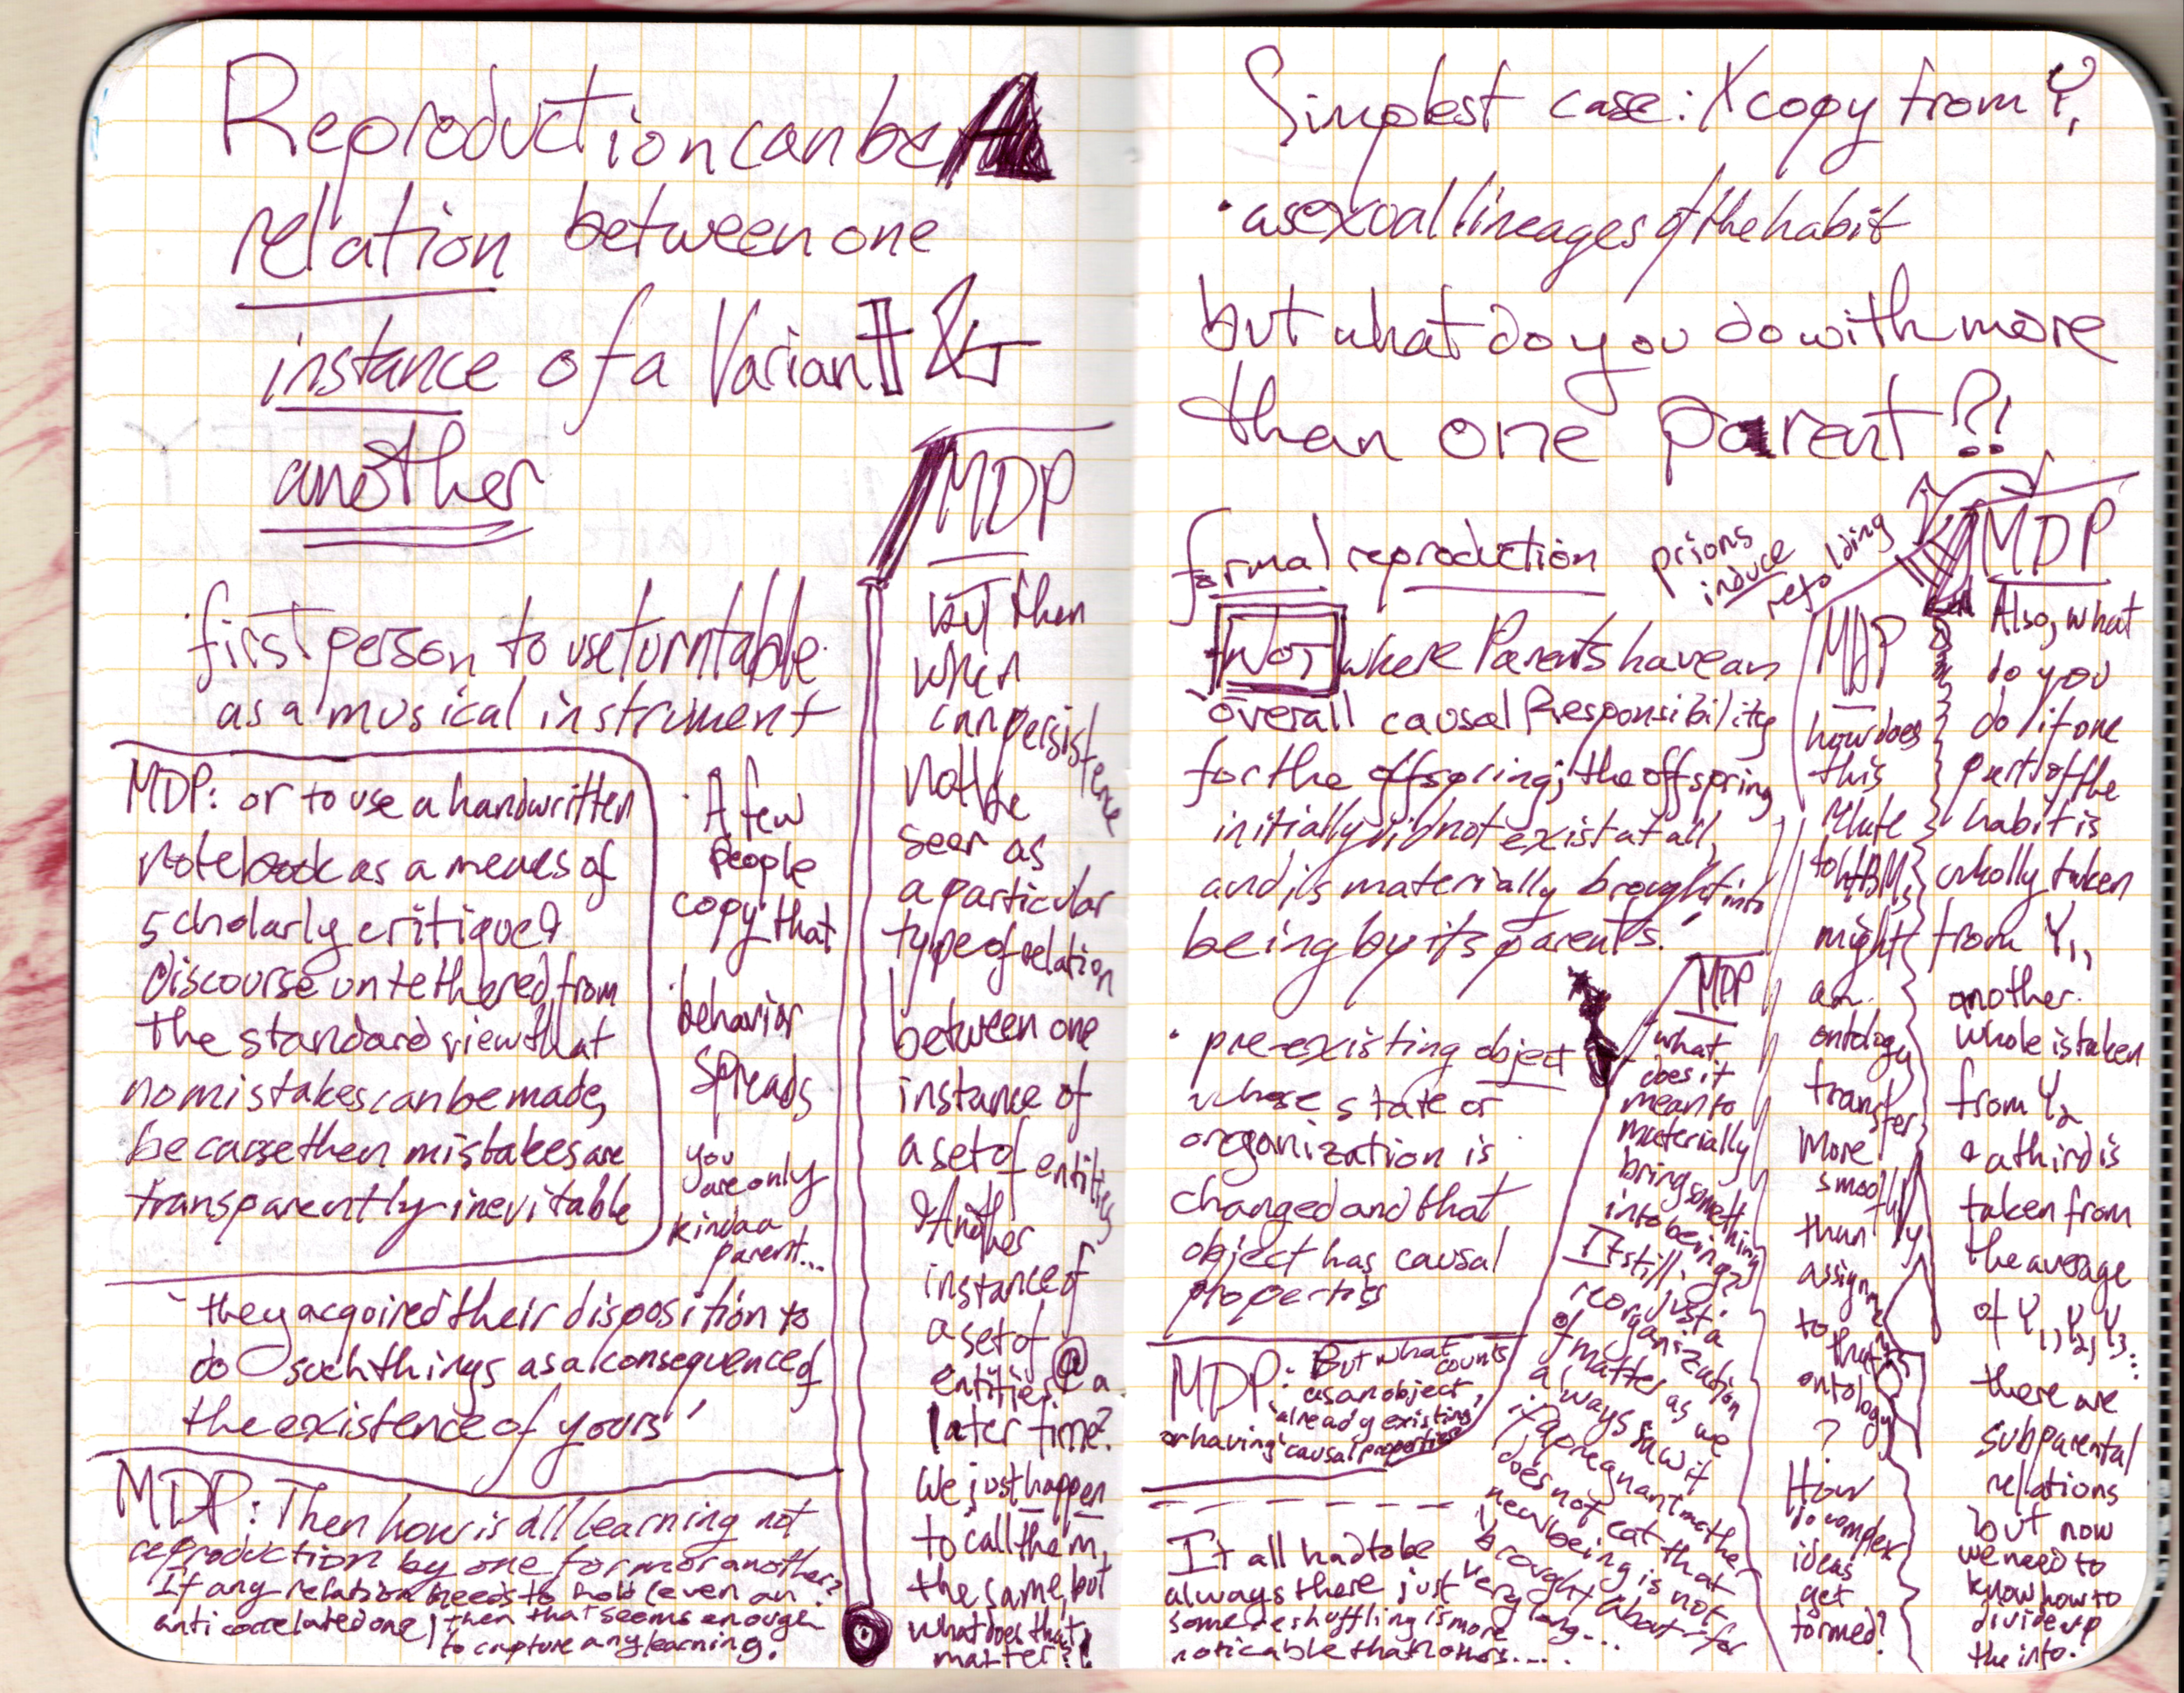 Reproduction can be A
relation between one
instance of a Variant &
another
· first person to use turntable
as a musical instrument
MDP: or to use a handwritten
notebook as a means of
scholarly critique &
discourse untethered from
the standard view that
no mistakes can be made,
because then mistakes are
transparently inevitable
· A few
people
copy that
· behavior
spreads
you
are only
kinda a
parent...
- they acquired their disposition to
do such things as a consequence of
the existence of yours'
MDP: Then how is all learning not
reproduction by one form or another?
If any relation needs to hold (even an
anti correlated one) then that seems enough
to capture any learning.
MDP
but then
when
can persistence
not be
seen as
a particular
type of relation
between one
instance of
a set of entities
& Another
instance of
a set of
entities @ a
later time?
We just happen
to call them
the same, but
what does that
matter?!
Simplest case: X copy from Y,
· asexual lineages of the habit
but what do you do with more
than one parent?!
formal reproduction
prions
induce
refolding
NOT where Parents have an
'overall causal Responsibility
for the offspring; the offspring
initially did not exist at all,
and is materially brought into
being by its parents.'
· pre-existing object
whose state or
oregonization is
changed and that
object has causal
properties
MDP: But what counts
as an object,
'already existing'
or having 'causal properties'
It all had to be
always there just
some reshuffling is more
noticable than others....
MDP
what
does it
mean to
materially
bring something
into being?
It still is just a
reorganization
of matter as we
always saw it
if a pregnant mother
does not eat that
new being is not
brought about for
very long...
MDP
how does
this
relate
to HBM,
might
an
ontology
transfer
more
smoothly
than
assignment
to that
ontology
?
How
do complex
ideas
get
formed?
MDP
Also, what
do you
do if one
part of the
habit is
wholly taken
from Y1,
another
whole is taken
from Y2
& a third is
taken from
the average
of Y1, Y2, Y3...
there are
subparental
relations
but now
we need to
know how to
divide up
the info.